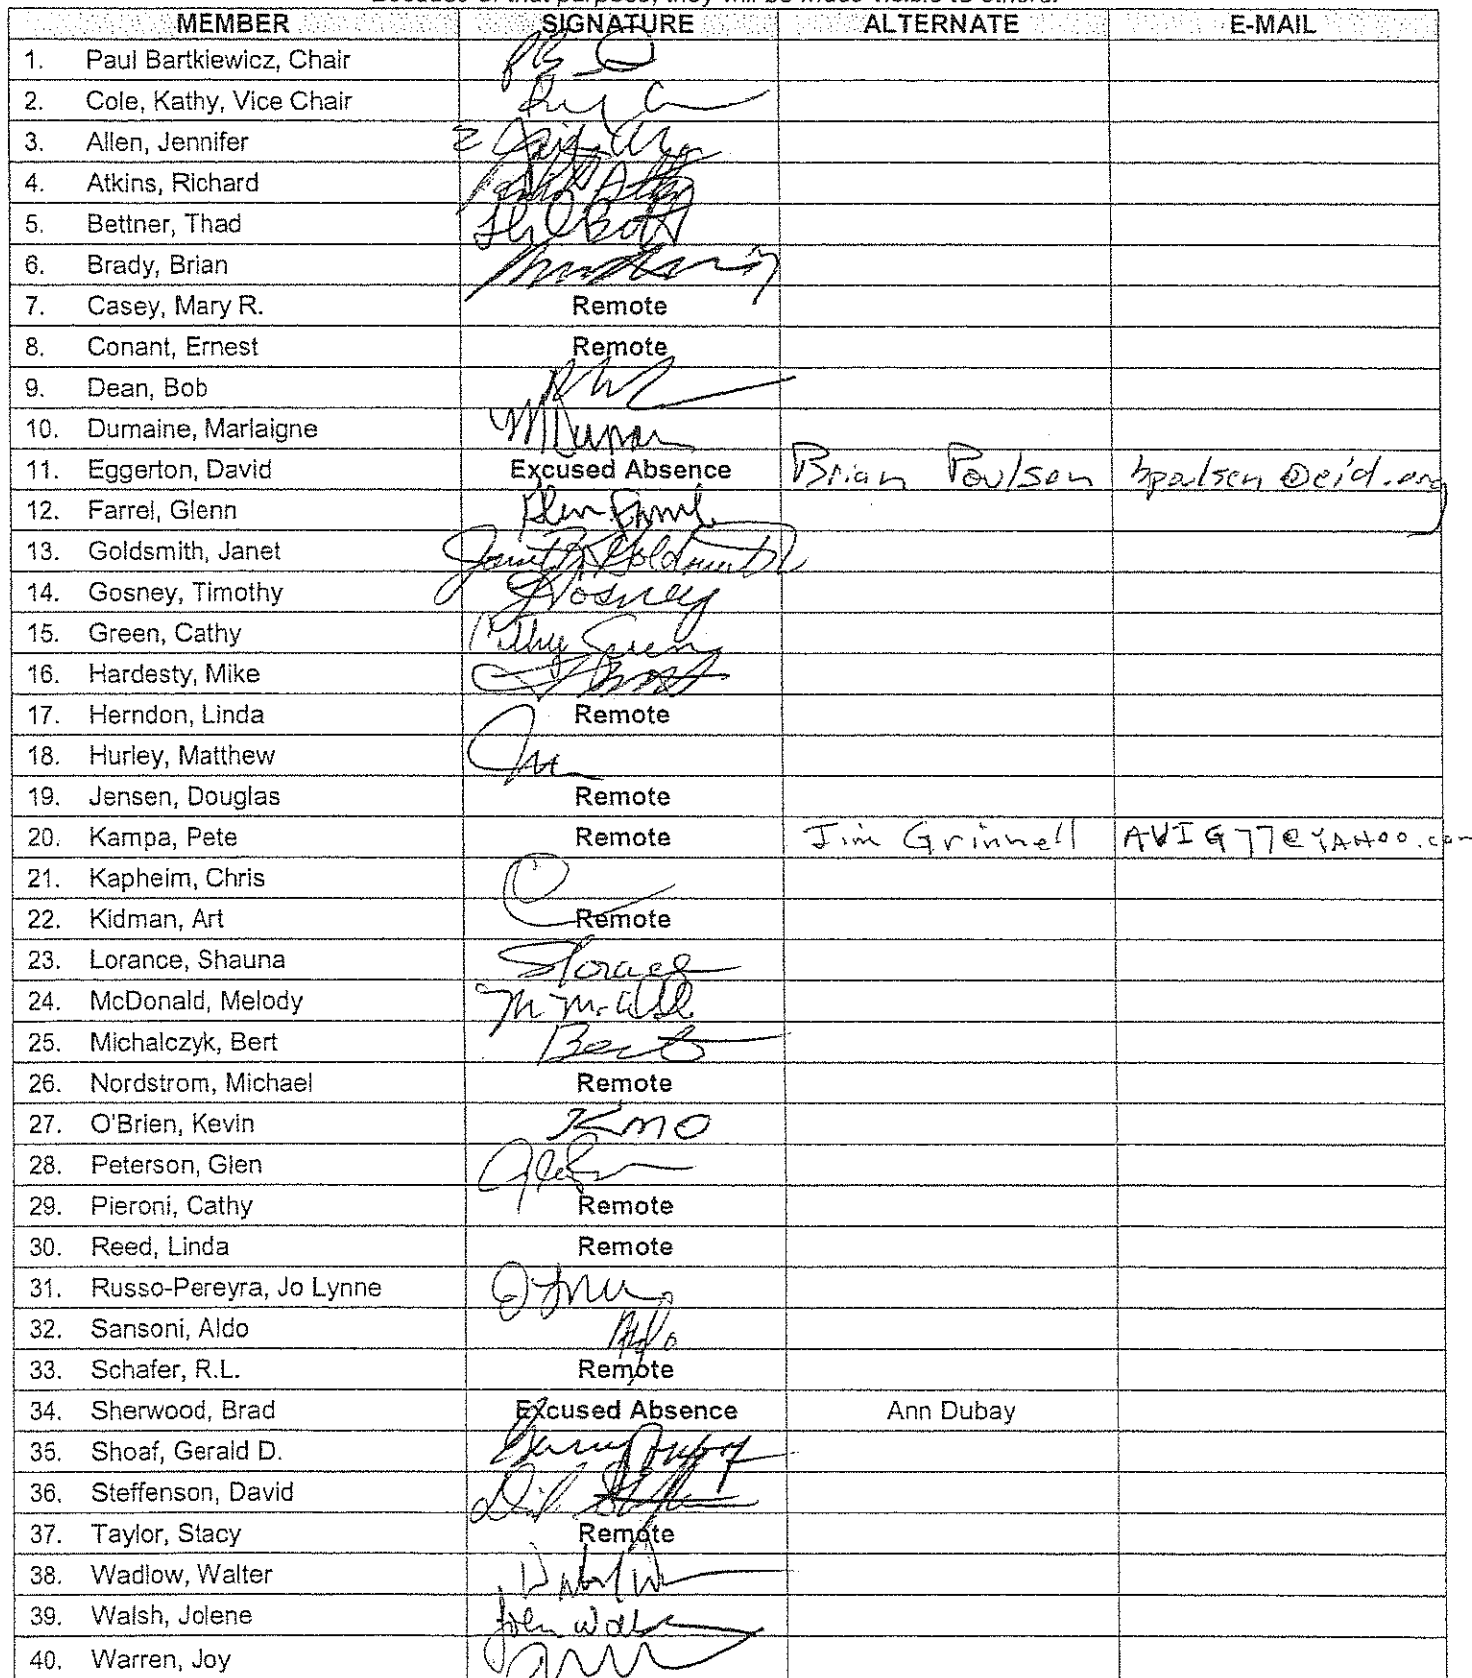 MEMBER SIGNATURE ALTERNATE E-MAIL
1. Paul Bartkiewicz, Chair
2. Cole, Kathy, Vice Chair
3. Allen, Jennifer
4. Atkins, Richard
5. Bettner, Thad
6. Brady, Brian
7. Casey, Mary R. Remote
8. Conant, Ernest Remote
9. Dean, Bob
10. Dumaine, Marlaigne
11. Eggerton, David Excused Absence Brian Poulsen bpoulsen@eid.org
12. Farrel, Glenn
13. Goldsmith, Janet
14. Gosney, Timothy
15. Green, Cathy
16. Hardesty, Mike
17. Herndon, Linda Remote
18. Hurley, Matthew
19. Jensen, Douglas Remote
20. Kampa, Pete Remote Jim Grinnell AVIG77@YAHOO.com
21. Kapheim, Chris
22. Kidman, Art Remote
23. Lorance, Shauna
24. McDonald, Melody
25. Michalczyk, Bert Bert
26. Nordstrom, Michael Remote
27. O'Brien, Kevin KMO
28. Peterson, Glen
29. Pieroni, Cathy Remote
30. Reed, Linda Remote
31. Russo-Pereyra, Jo Lynne
32. Sansoni, Aldo Aldo
33. Schafer, R.L. Remote
34. Sherwood, Brad Excused Absence Ann Dubay
35. Shoaf, Gerald D.
36. Steffenson, David
37. Taylor, Stacy Remote
38. Wadlow, Walter
39. Walsh, Jolene
40. Warren, Joy